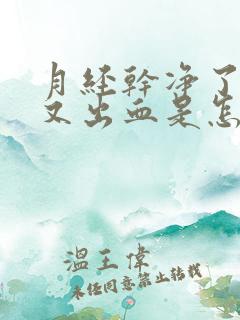 月经幹净了
又出血是怎
溫王偉
未经同意禁止转载